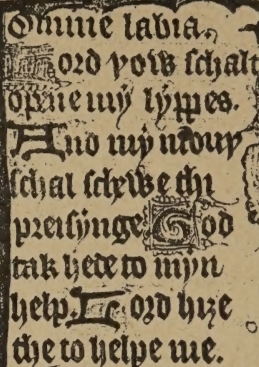 Domine labia.
Lord yow schalt
opne my lyppes.
And my mouþ
schal schewe thi
preisynge God
tak hede to myn
help. Lord hize
the to helpe me.